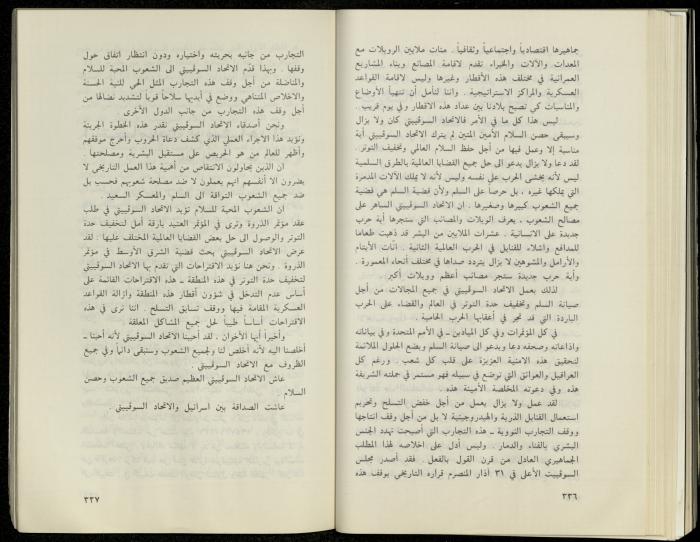 جماهيرها اقتصادياً واجتماعياً وثقافياً . مئات ملايين الروبلات مع
المعدات والآلات والخبراء تقدم لاقامة المصانع وبناء المشاريع
العمرانية في مختلف هذه الأقطار وغيرها وليس لاقامة القواعد
العسكرية والمراكز الاستراتيجية . واننا لنأمل أن تتهيأ الأوضاع
والمناسبات كي تصبح بلادنا بين عداد هذه الاقطار وفي يوم قريب .
ليس هذا كل ما في الأمر فالاتحاد السوفييتي كان ولا يزال
وسيبقى حصن السلام الأمين المتين لم يترك الاتحاد السوفييتي أية
مناسبة إلا وعمل فيها من أجل حفظ السلام العالمي وتخفيف التوتر .
لقد دعا ولا يزال يدعو الى حل جميع القضايا العالمية بالطرق السلمية
ليس لأنه يخشى الحرب على نفسه وليس لأنه لا يملك الآلات المدمرة
التي يملكها غيره ، بل حرصاً على السلم ولأن قضية السلم هي قضية
جميع الشعوب كبيرها وصغيرها . إن الاتحاد السوفييتي الساهر على
مصالح الشعوب ، يعرف الويلات والمصائب التي ستجرها أية حرب
جديدة على الانسانية . عشرات الملايين من البشر قد ذهبت طعاما
للمدافع واشلاء للقنابل في الحرب العالمية الثانية . انات الأيتام
والأرامل والمشوهين لا يزال يتردد صداها في مختلف أنحاء المعمورة .
وأية حرب جديدة ستجر مصائب أعظم وويلات أكبر .
لذلك يعمل الاتحاد السوفييتي في جميع المجالات من أجل
صيانة السلم وتخفيف حدة التوتر في العالم والقضاء على الحرب
الباردة التي قد تجر في أعقابها الحرب الحامية .
في كل المؤتمرات وفي كل الميادين ـ في الأمم المتحدة وفي بياناته
واذاعاته وصحفه دعا ويدعو الى صيانة السلم ويضع الحلول الملائمة
لتحقيق هذه الامنية العزيزة على قلب كل شعب . ورغم كل
العراقيل والعوائق التي توضع في سبيله فهو مستمر في حملته الشريفة
هذه وفي دعوته المخلصة الأمينة هذه .
لقد عمل ولا يزال يعمل من أجل خفض التسلح وتحريم
استعمال القنابل الذرية والهيدروجينية لا بل من أجل وقف انتاجها
ووقف التجارب النووية ـ هذه التجارب التي أصبحت تهدد الجنس
البشري بالفناء والدمار . وليس أدل على اخلاصه لهذا المطلب
الجماهيري العادل من قرن القول بالفعل . فقد أصدر مجلس
السوفييت الأعلى في ٣١ آذار المنصرم قراره التاريخي بوقف هذه
٣٣٦
التجارب من جانبه بحريته واختياره ودون انتظار اتفاق حول
وقفها . وبهذا قدم الاتحاد السوفييتي الى الشعوب المحبة للسلام
والمناضلة من أجل وقف هذه التجارب المثل الحي للنية الحسنة
والاخلاص المتناهي ووضع في أيديها سلاحاً قوياً لتشديد نضالها من
أجل وقف هذه التجارب من جانب الدول الأخرى .
ونحن أصدقاء الاتحاد السوفييتي نقدر هذه الخطوة الجريئة
ونؤيد هذا الاجراء العملي الذي كشف دعاة الحروب وأحرج موقفهم
وأظهر للعالم من هو الحريص على مستقبل البشرية ومصلحتها .
ان الذين يحاولون الانتقاص من أهمية هذا العمل التاريخي لا
يضرون الا أنفسهم انهم يعملون لا ضد مصلحة شعوبهم فحسب بل
ضد جميع الشعوب التواقة الى السلم والمعسكر السعيد .
ان الشعوب المحبة للسلام تؤيد الاتحاد السوفييتي في طلب
عقد مؤتمر الذروة وترى في المؤتمر العتيد بارقة أمل لتخفيف حدة
التوتر والوصول الى حل بعض القضايا العالمية المختلف عليها . لقد
عرض الاتحاد السوفييتي بحث قضية الشرق الأوسط في مؤتمر
الذروة . ونحن هنا نؤيد الاقتراحات التي تقدم بها الاتحاد السوفييتي
لتخفيف حدة التوتر في هذه المنطقة ـ هذه الاقتراحات القائمة على
أساس عدم التدخل في شؤون أقطار هذه المنطقة وازالة القواعد
العسكرية المقامة فيها ووقف تسابق التسلح . اننا نرى في هذه
الاقتراحات أساساً طيباً لحل جميع المشاكل المعلقة
وأخيراً أيها الأخوان . لقد أحببنا الاتحاد السوفييتي لأنه أحبنا ـ
أخلصنا اليه لأنه أخلص لنا ولجميع الشعوب وسنبقى دائماً وفي جميع
الظروف مع الاتحاد السوفييتي .
عاش الاتحاد السوفييتي العظيم صديق جميع الشعوب وحصن
السلام .
عاشت الصداقة بين اسرائيل والاتحاد السوفييتي .
٣٣٧